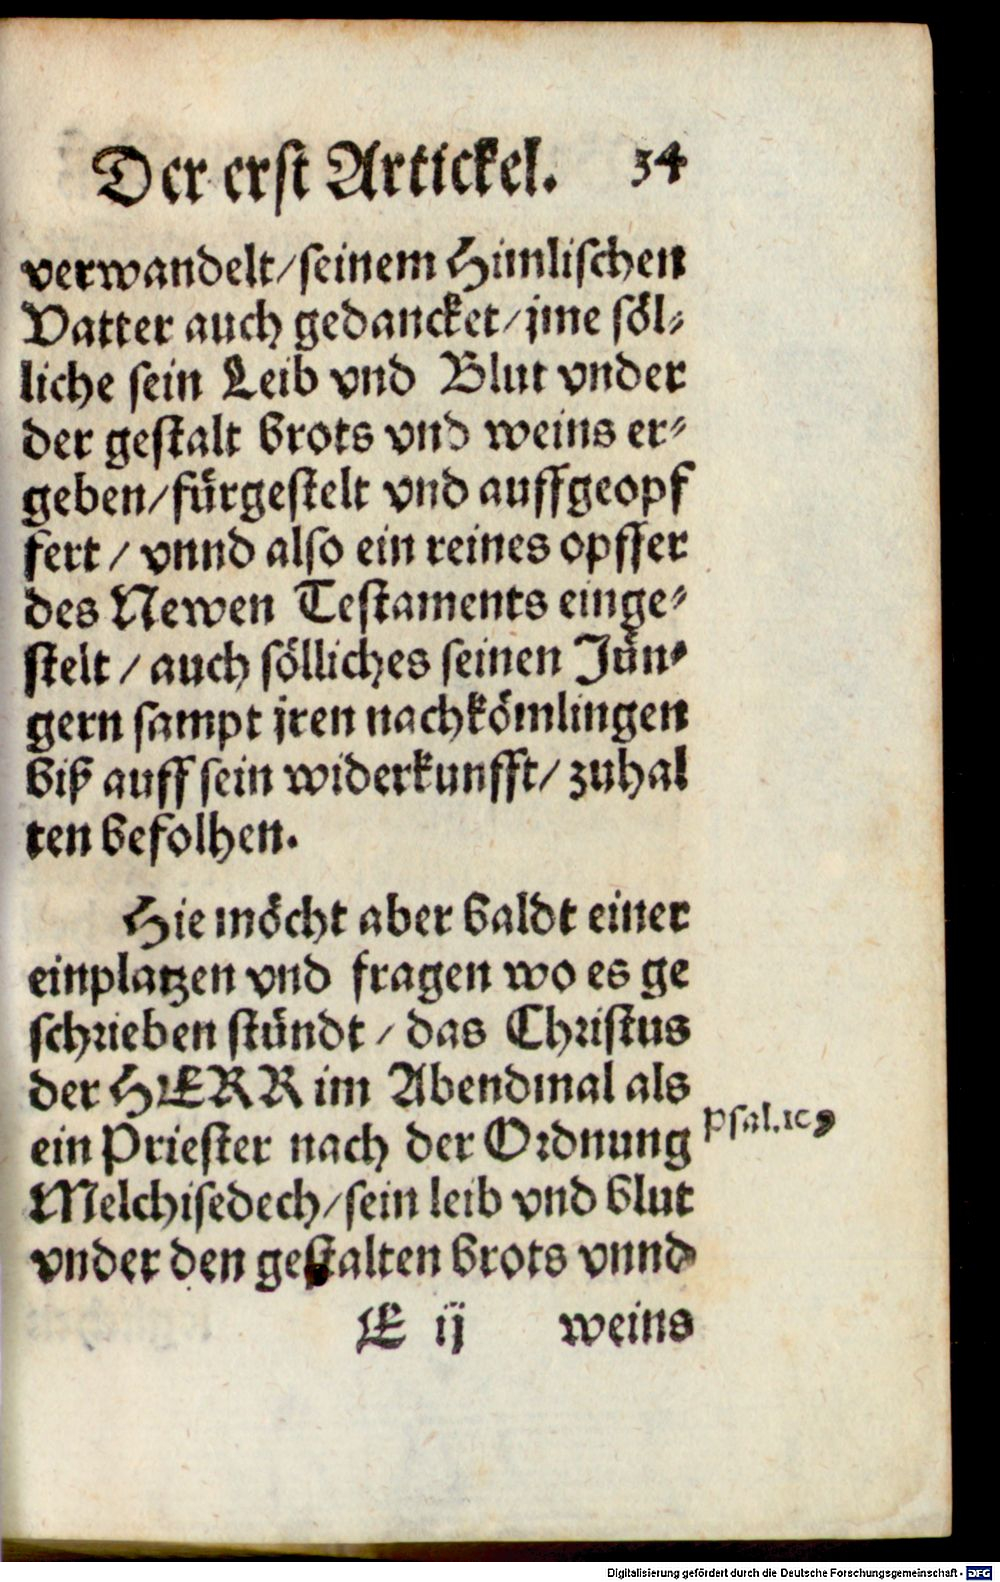 Der erst Artickel. 34
verwandelt/seinem Himlischen
Vatter auch gedancket/jme söl⸗
liche sein Leib vnd Blut vnder
der gestalt brots vnd weins er⸗
geben/fürgestelt vnd auffgeopf
fert / vnnd also ein reines opffer
des Newen Testaments einge⸗
stelt / auch sölliches seinen Jün⸗
gern sampt jren nachkömlingen
biß auff sein widerkunfft/ zuhal
ten befolhen.
Hie möcht aber baldt einer
einplatzen vnd fragen wo es ge
schrieben stündt / das Christus
der HERR im Abendmal als
ein Priester nach der Ordnung
Psal.109
Melchisedech/sein leib vnd blut
vnder den gestalten brots vnnd
E ij weins
Digitalisierung gefördert durch die Deutsche Forschungsgemeinschaft - DFG